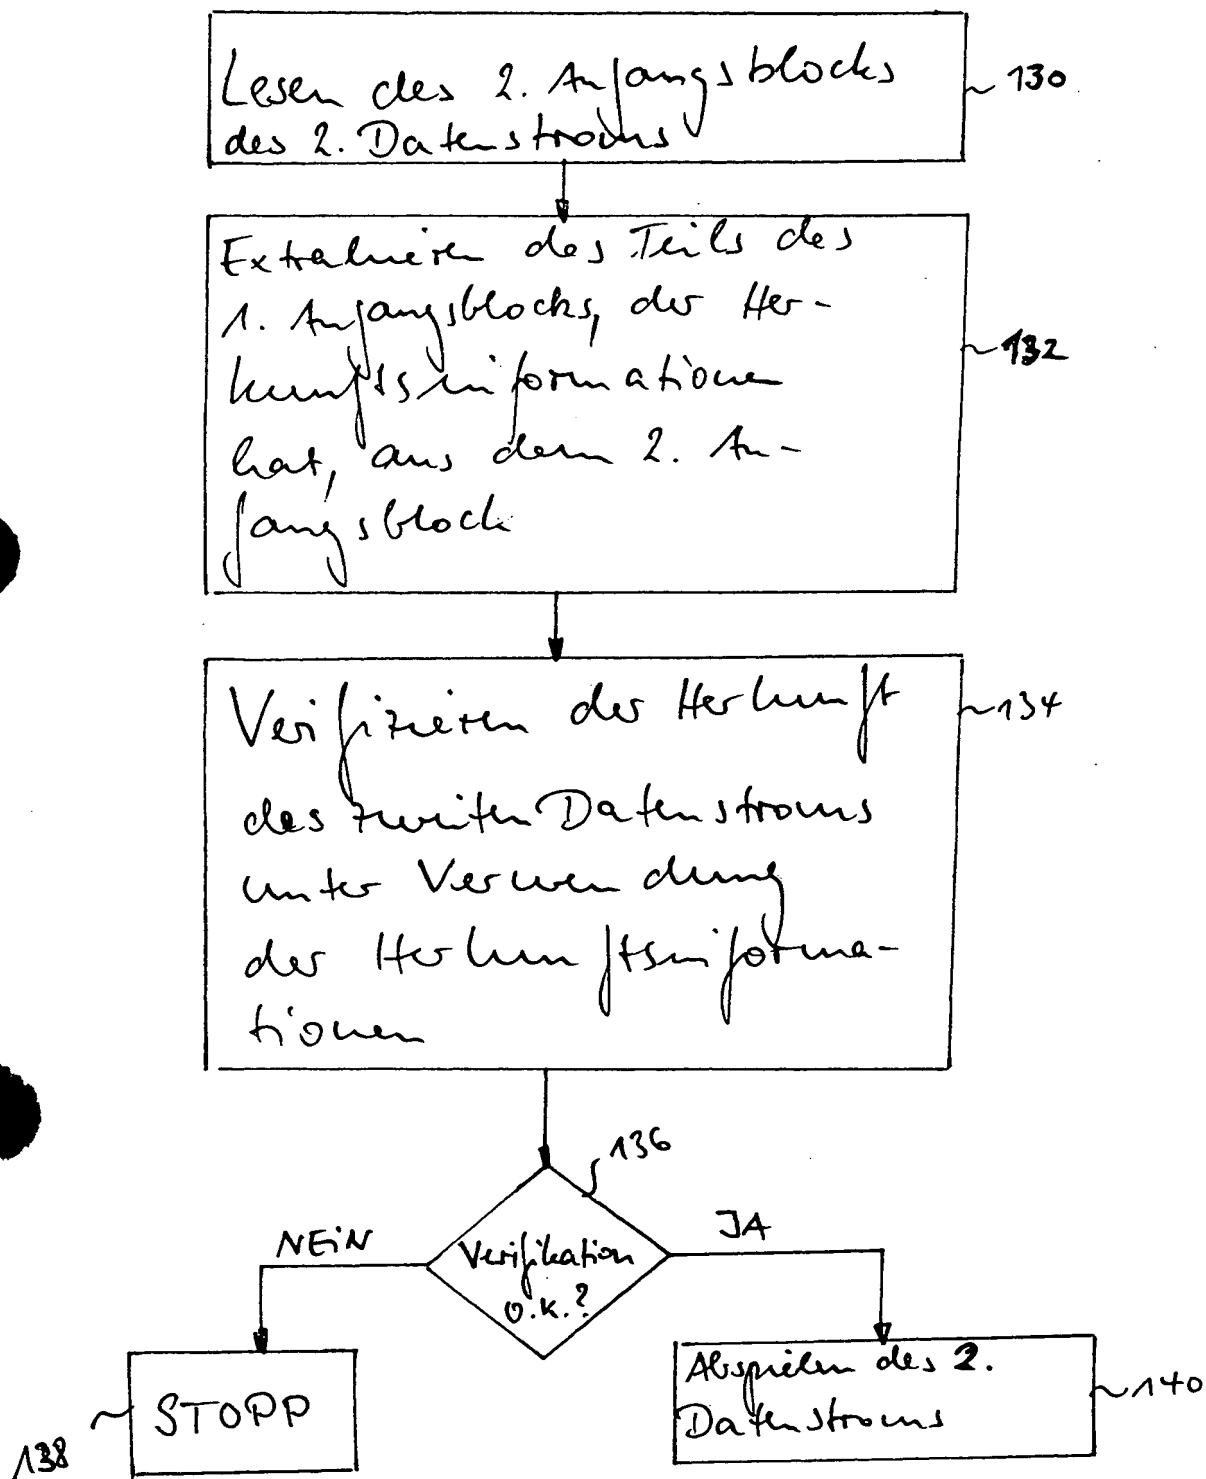 Lesen des 2. Anfangsblocks
des 2. Datenstroms
130
Extrahieren des Teils des
1. Anfangsblocks, der Her-
kunftsinformationen
hat, aus dem 2. An-
fangsblock
132
Verifizieren der Herkunft
des zweiten Datenstroms
unter Verwendung
der Herkunftsinforma-
tionen
134
136
NEIN
JA
Verifikation
o.k.?
STOPP
138
Abspielen des 2.
Datenstroms
140